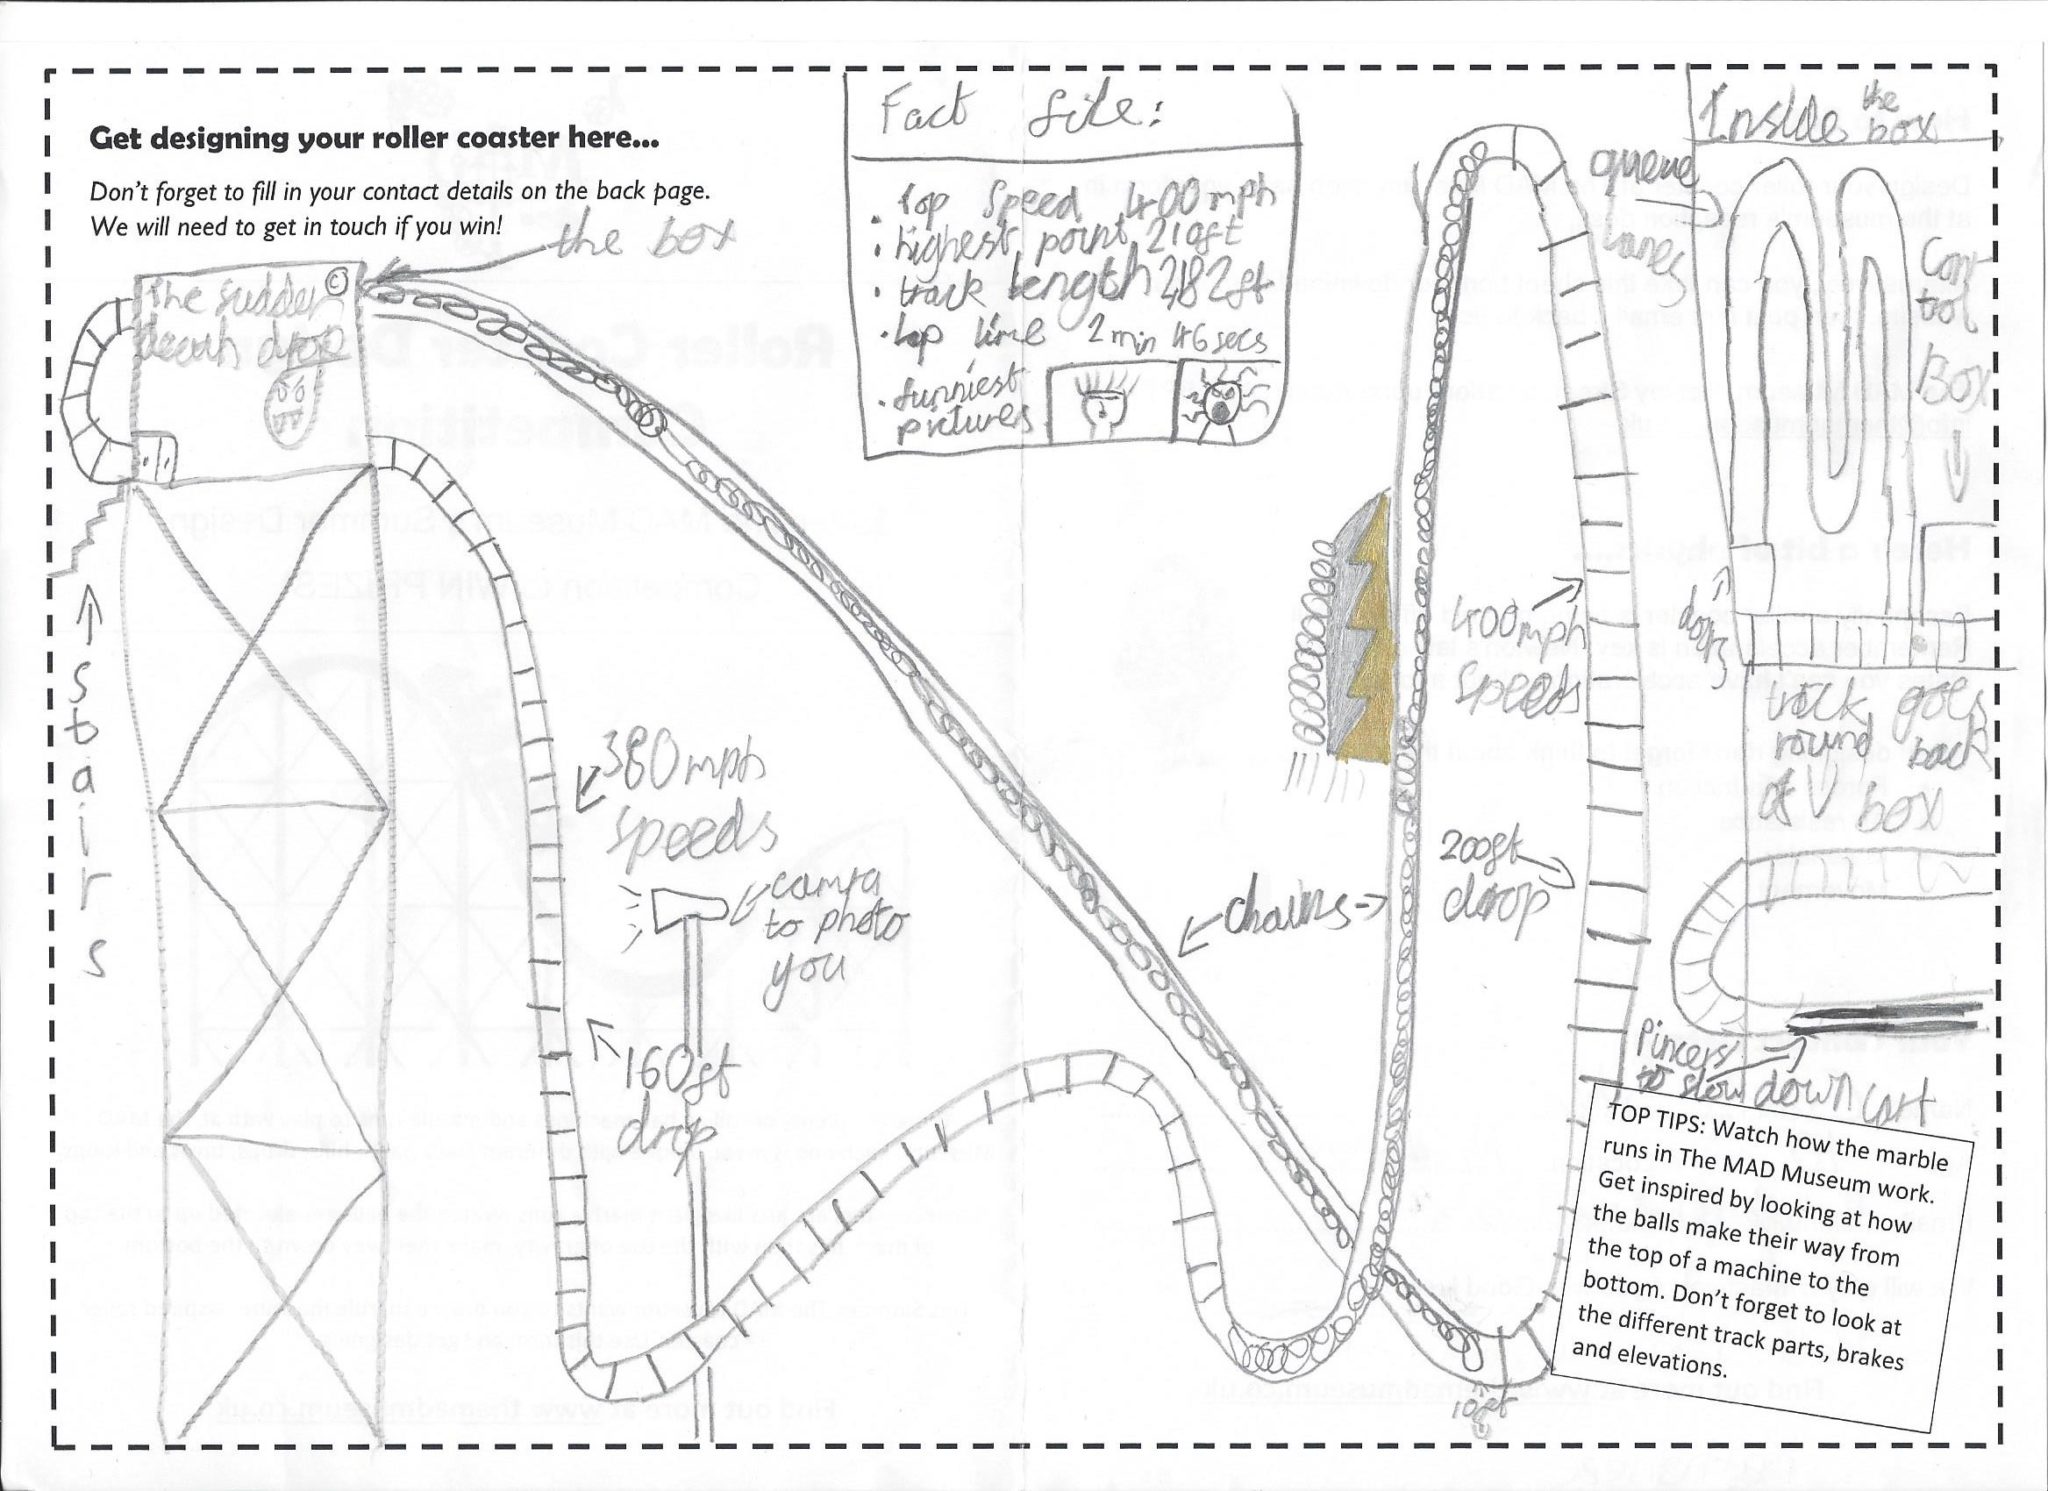 Get designing your roller coaster here...
Don't forget to fill in your contact details on the back page.
We will need to get in touch if you win!
the box
The sudden ©
death drop
Fact file:
• Top Speed 400mph
• highest point 210ft
• track length 2482ft
• top time 2 min 46 secs
• funniest
pictures
Inside the box
queue
lanes
Con-
trol
Box
doors
track goes
round back
to box
Pincers
to slow down cart
stairs
380mph
speeds
camra
to photo
you
160ft
drop
chains
400mph
speeds
200ft
drop
10ft
TOP TIPS: Watch how the marble
runs in The MAD Museum work.
Get inspired by looking at how
the balls make their way from
the top of a machine to the
bottom. Don't forget to look at
the different track parts, brakes
and elevations.